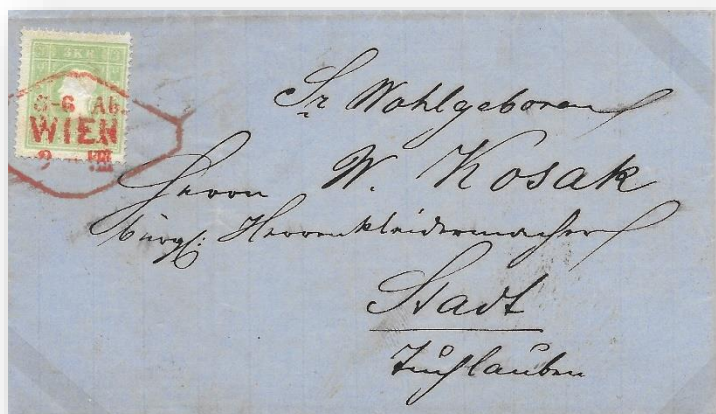 3 KR
5-6 Ab.
WIEN
VIII
Sr Wohlgeboren
Herrn W. Kosak
bürgl: Herrenkleidermacher
Stadt
Tuchlauben